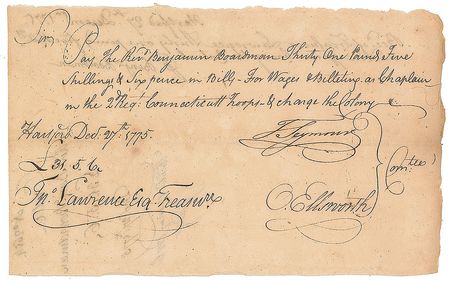 Sir
Pay The Revd Benjamin Boardman Thirty One Pounds Five
Shillings & Six pence in Bills - For Wages & Billeting as Chaplain
in the 2d Regt. Connecticutt Troops - & charge the Colony &c.
Hartford Decr. 27th. 1775.
T. Seymour
£31. 5. 6
Comtee
Jno. Lawrence Esqr. Treasurer
O. Ellsworth